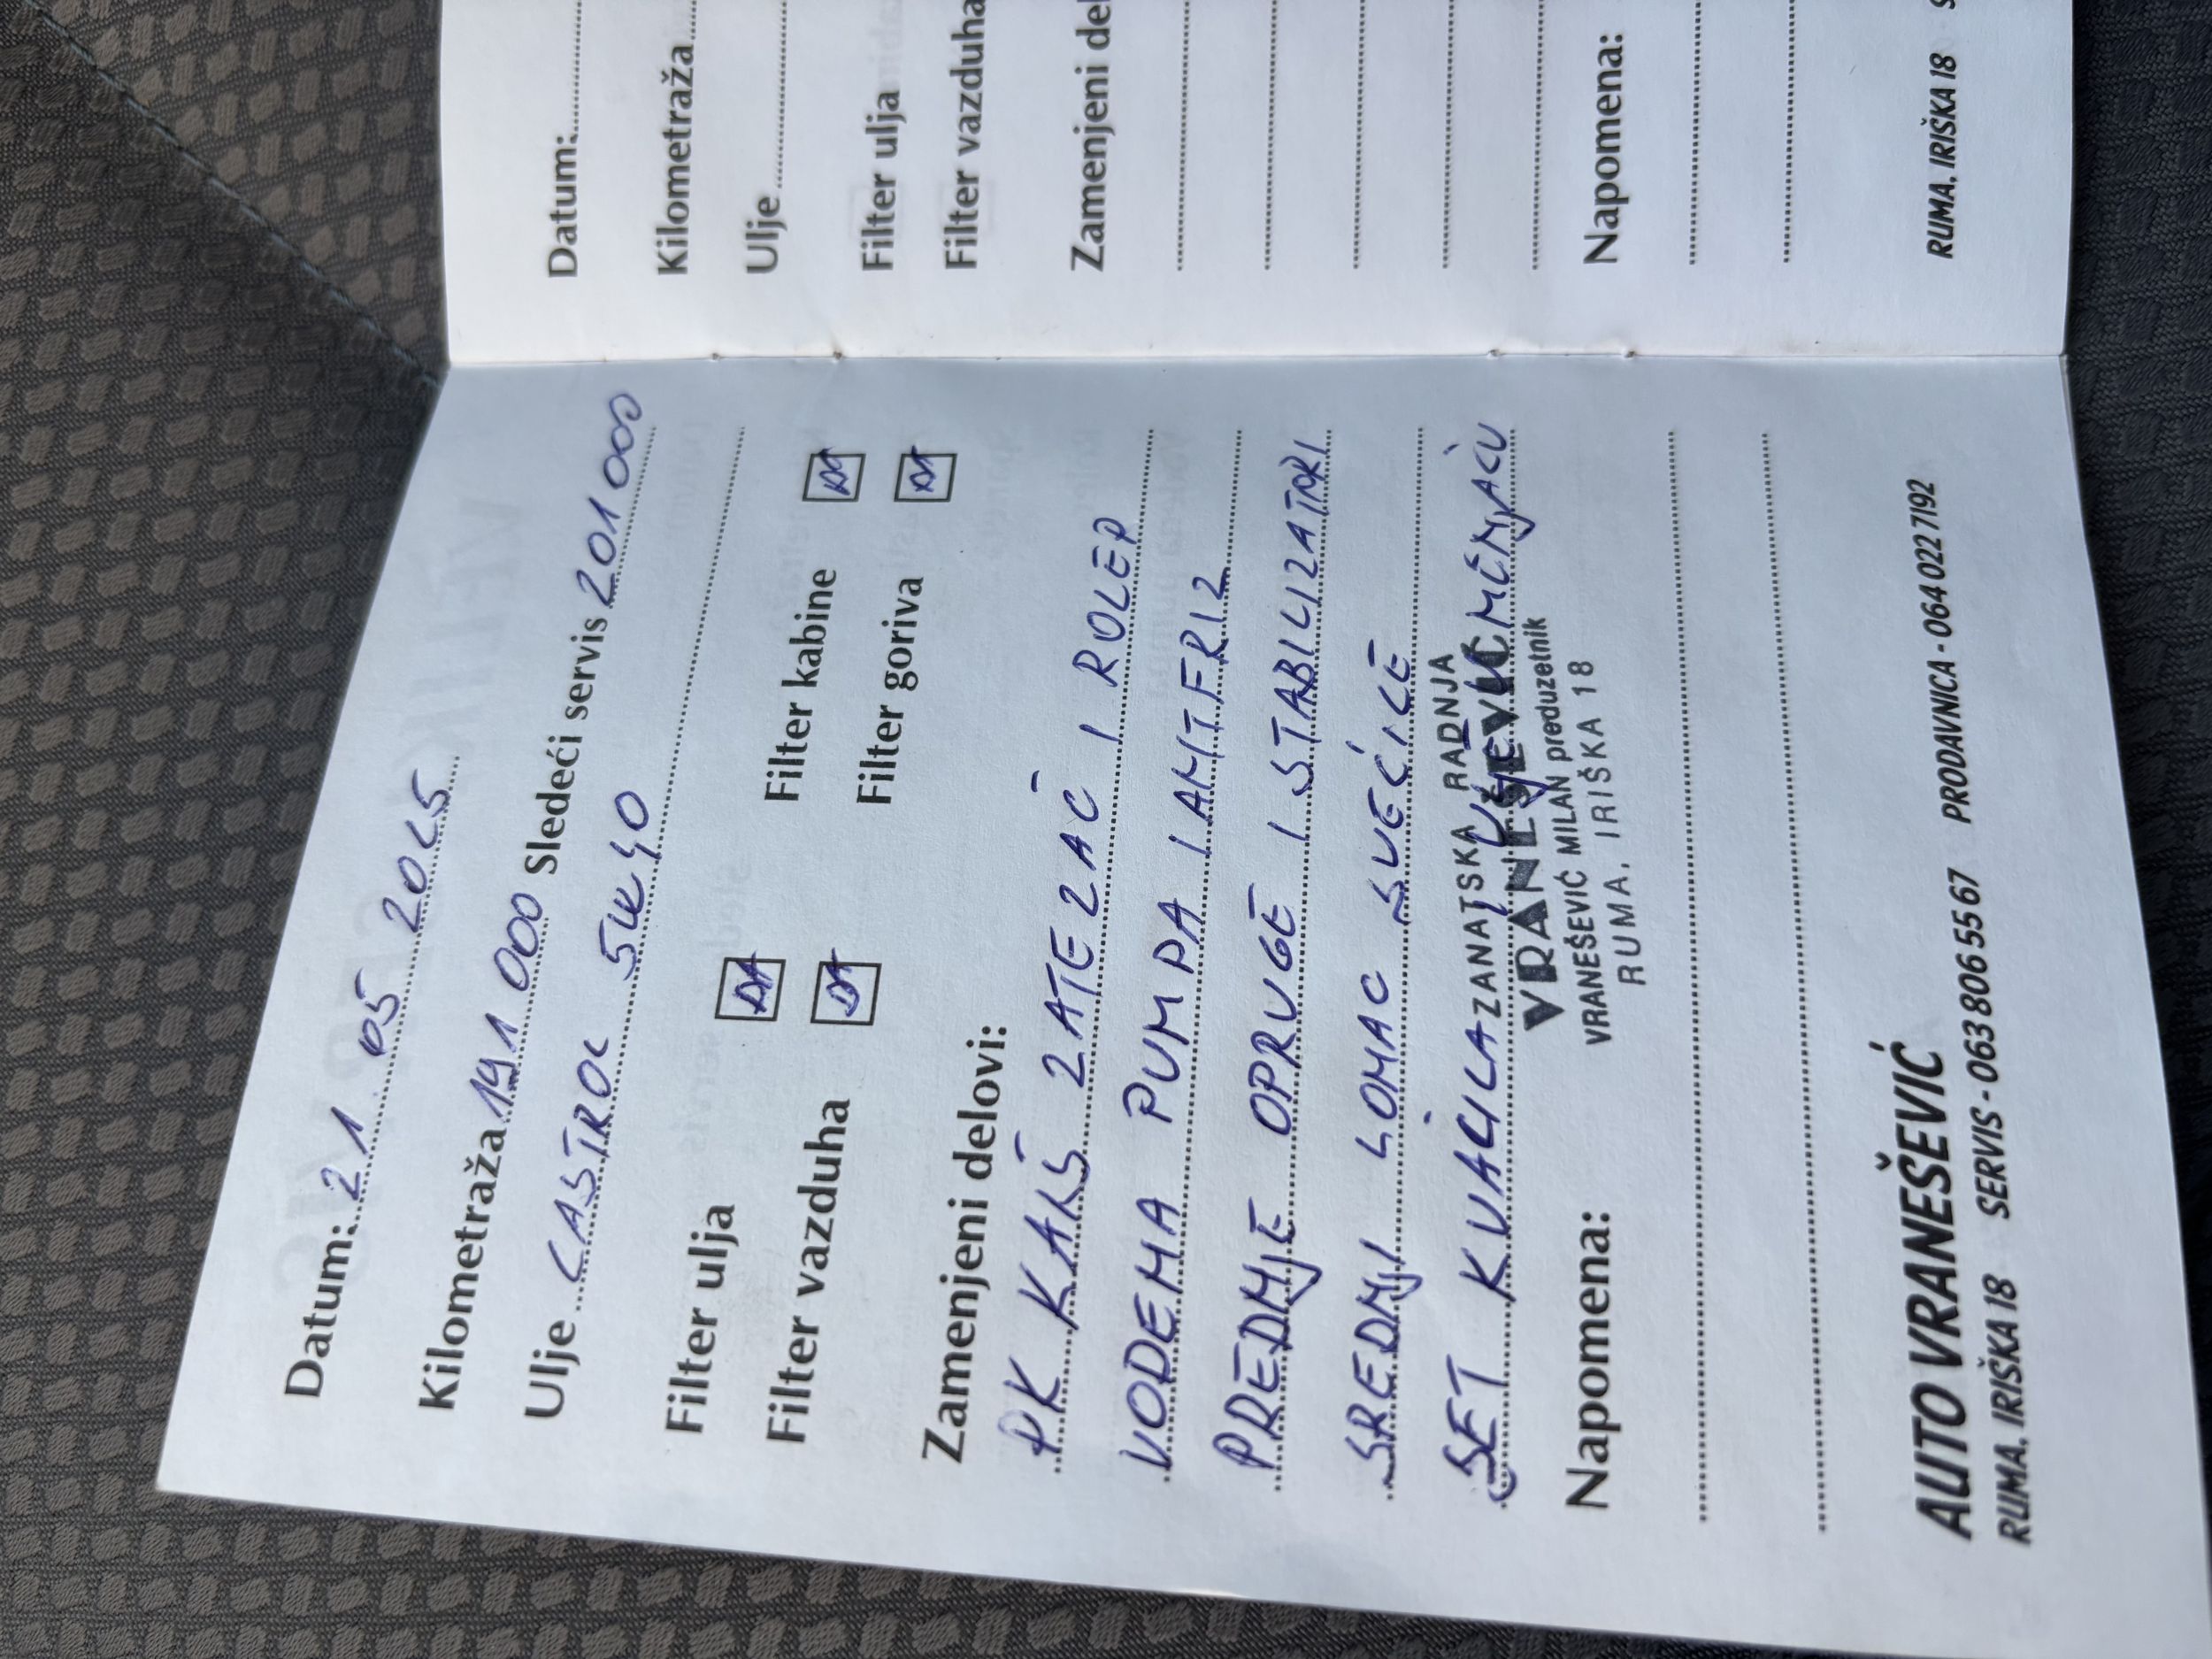 Datum: 21 05 2025
Kilometraža 191 000 Sledeći servis 201 000
Ulje CASTROL 5W40
Filter ulja DA Filter kabine DA
Filter vazduha DA Filter goriva DA
Zamenjeni delovi:
PK KAIŠ ZATEZAČ I ROLER
VODENA PUMPA I ANTFRIZ
PREDNJE OPRUGE I STABILIZATORI
SREDNJI LONAC SVEĆICE
SET KVAČILA I ULJE U MENJAČU
ZANATSKA RADNJA
VRANEŠEVIĆ
VRANEŠEVIĆ MILAN preduzetnik
RUMA, IRIŠKA 18
Napomena:
AUTO VRANEŠEVIĆ
RUMA, IRIŠKA 18 SERVIS - 063 806 55 67 PRODAVNICA - 064 022 7192
Datum:
Kilometraža
Ulje
Filter ulja
Filter vazduha
Zamenjeni de
Napomena:
RUMA, IRIŠKA 18 S